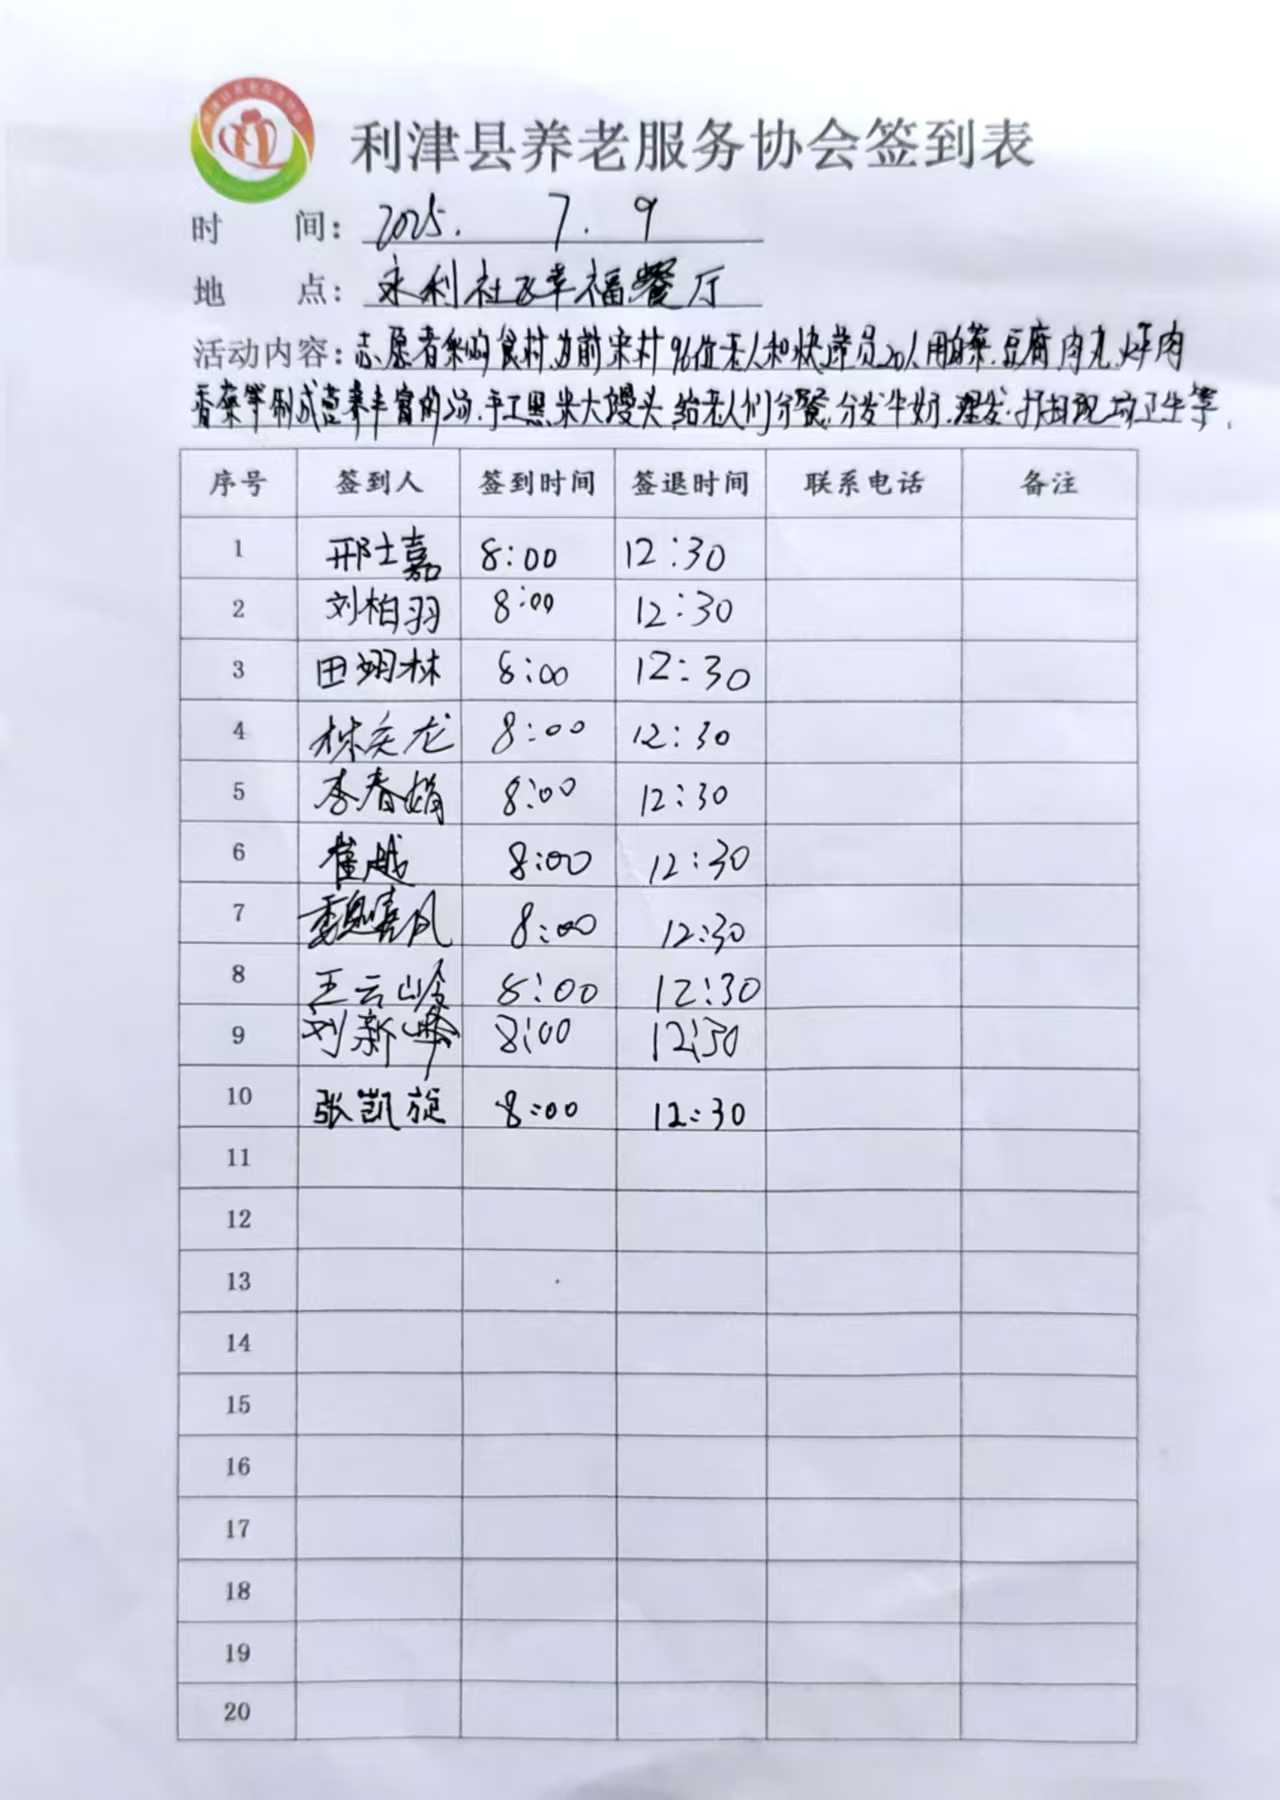 利津县养老服务协会签到表
时 间： 2025. 7. 9
地 点： 永利社区幸福餐厅
活动内容：志愿者采购食材,为前宋村96位老人和快递员20人用白菜.豆腐.肉丸.烀肉
香菜等制成营养丰富的汤.手工黑米大馒头.给老人们分餐.分发牛奶.理发.打扫现场卫生等.
序号 签到人 签到时间 签退时间 联系电话 备注
1 邢士嘉 8:00 12:30
2 刘柏羽 8:00 12:30
3 田翊林 8:00 12:30
4 林奕龙 8:00 12:30
5 李春娟 8:00 12:30
6 崔越 8:00 12:30
7 魏喜凤 8:00 12:30
8 王云岭 8:00 12:30
9 刘新峰 8:00 12:30
10 张凯旋 8:00 12:30
11
12
13
14
15
16
17
18
19
20